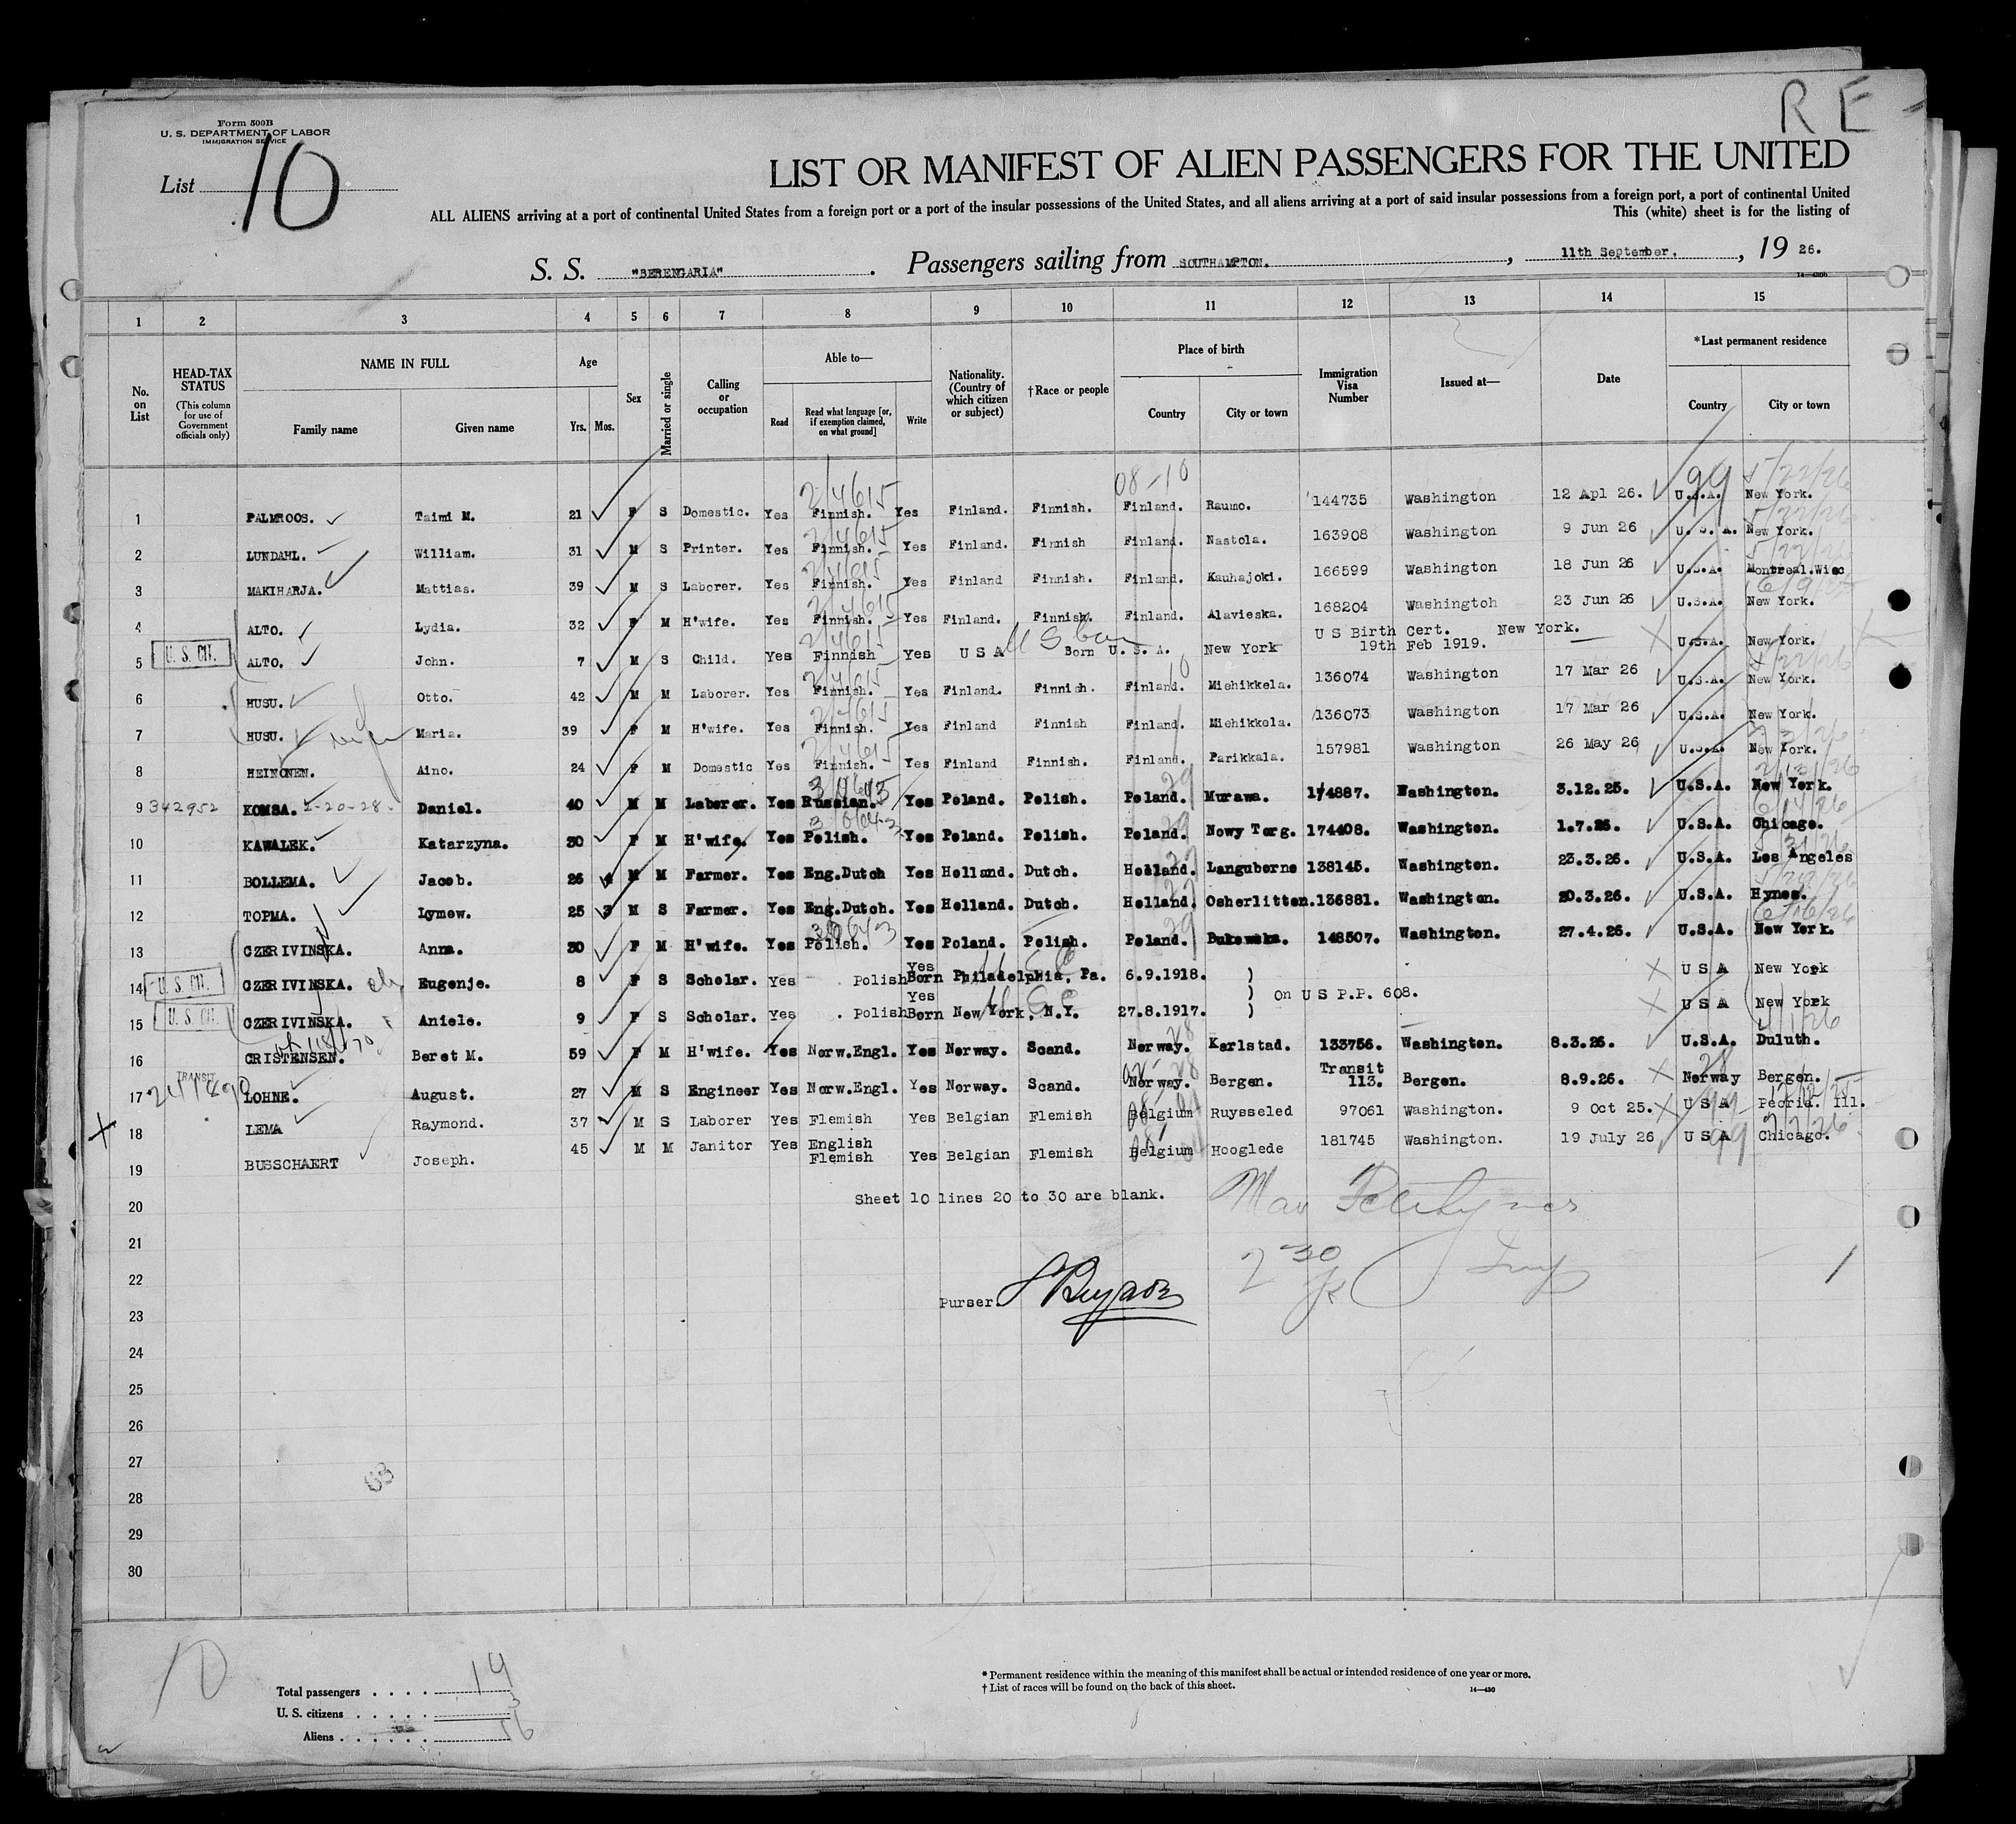 RE
Form 500B
U. S. DEPARTMENT OF LABOR
IMMIGRATION SERVICE
List 10
LIST OR MANIFEST OF ALIEN PASSENGERS FOR THE UNITED
ALL ALIENS arriving at a port of continental United States from a foreign port or a port of the insular possessions of the United States, and all aliens arriving at a port of said insular possessions from a foreign port, a port of continental United
This (white) sheet is for the listing of
S. S. "BERENGARIA" . Passengers sailing from SOUTHAMPTON. , 11th September. , 19 26.
14—430b
1 2 3 4 5 6 7 8 9 10 11 12 13 14 15
No. on List
HEAD-TAX STATUS (This column for use of Government officials only)
NAME IN FULL
Family name
Given name
Age
Yrs. Mos.
Sex
Married or single
Calling or occupation
Able to—
Read
Read what language [or, if exemption claimed, on what ground]
Write
Nationality. (Country of which citizen or subject)
†Race or people
Place of birth
Country
City or town
Immigration Visa Number
Issued at—
Date
*Last permanent residence
Country
City or town
08-10 99 5/22/26
1 PALMROOS. Taimi M. 21 F S Domestic. Yes Finnish. Yes Finland. Finnish. Finland. Raumo. 144735 Washington 12 Apl 26. U.S.A. New York.
2 LUNDAHL. William. 31 M S Printer. Yes Finnish. Yes Finland. Finnish Finland. Nastola. 163908 Washington 9 Jun 26 U.S.A. New York.
3 MAKIHARJA. Mattias. 39 M S Laborer. Yes Finnish. Yes Finland Finnish. Finland. Kauhajoki. 166599 Washington 18 Jun 26 U.S.A. Montreal.Wisc
4 ALTO. Lydia. 32 F M H'wife. Yes Finnish. Yes Finland. Finnish. Finland. Alavieska. 168204 Washingtoh 23 Jun 26 U.S.A. New York.
U S Birth Cert. New York.
5 U. S. CIT. ALTO. John. 7 M S Child. Yes Finnish Yes U S A Born U.S.A. New York 19th Feb 1919. U.S.A. New York.
6 HUSU. Otto. 42 M M Laborer. Yes Finnish. Yes Finland. Finnish. Finland. Miehikkela. 136074 Washington 17 Mar 26 U.S.A. New York.
7 HUSU. wife Maria. 39 F M H'wife. Yes Finnish. Yes Finland Finnish Finland. Miehikkela. 136073 Washington 17 Mar 26 U.S.A. New York.
8 HEINONEN. Aino. 24 F M Domestic Yes Finnish. Yes Finland Finnish. Finland. Parikkala. 157981 Washington 26 May 26 U.S.A. New York.
9 342952 KOMSA. 2-20-28. Daniel. 40 M M Laborer. Yes Russian. Yes Poland. Polish. Poland. Murawa. 114887. Washington. 3.12.25. U.S.A. New York.
10 KAWALEK. Katarzyna. 30 F M H'wife. Yes Polish. Yes Poland. Polish. Poland. Nowy Torg. 174408. Washington. 1.7.26. U.S.A. Chicago.
11 BOLLEMA. Jacob. 26 4 M M Farmer. Yes Eng.Dutch Yes Holland. Dutch. Holland. Languborne 138145. Washington. 23.3.26. U.S.A. Los Angeles
12 TOPMA. Lymew. 25 3 M S Farmer. Yes Eng.Dutch. Yes Holland. Dutch. Holland. Osherlitten. 136881. Washington. 20.3.26. U.S.A. Hynes.
13 CZERIVINSKA. Anna. 30 F M H'wife. Yes Polish. Yes Poland. Polish. Poland. Bukowska. 148507. Washington. 27.4.26. U.S.A. New York.
14 U. S. CIT. CZERIVINSKA. Eugenje. 8 F S Scholar. Yes Polish Yes Born Philadelphia, Pa. 6.9.1918. ) U S A New York
15 U. S. CIT. CZERIVINSKA. Aniele. 9 F S Scholar. Yes . Polish Yes Born New York, N.Y. 27.8.1917. ) On U S P.P. 608. U S A New York
16 CRISTENSEN. Beret M. 59 F M H'wife. Yes Norw.Engl. Yes Norway. Scand. Norway. Karlstad. 133756. Washington. 8.3.26. U.S.A. Duluth.
17 TRANSIT LOHNE. August. 27 M S Engineer Yes Norw.Engl. Yes Norway. Scand. Norway. Bergen. Transit 113. Bergen. 8.9.26. Norway Bergen.
18 LEMA Raymond. 37 M S Laborer Yes Flemish Yes Belgian Flemish Belgium Ruysseled 97061 Washington. 9 Oct 25. U S A Peoria. Ill.
19 BUSSCHAERT Joseph. 45 M M Janitor Yes English Flemish Yes Belgian Flemish Belgium Hooglede 181745 Washington. 19 July 26 U S A Chicago.
20 Sheet 10 lines 20 to 30 are blank.
21
22 2 30
23 Purser.
24
25
26
27
28
29
30
10
Total passengers . . . . 19
U. S. citizens . . . . . 3
Aliens . . . . . . 16
* Permanent residence within the meaning of this manifest shall be actual or intended residence of one year or more.
† List of races will be found on the back of this sheet.
14—430